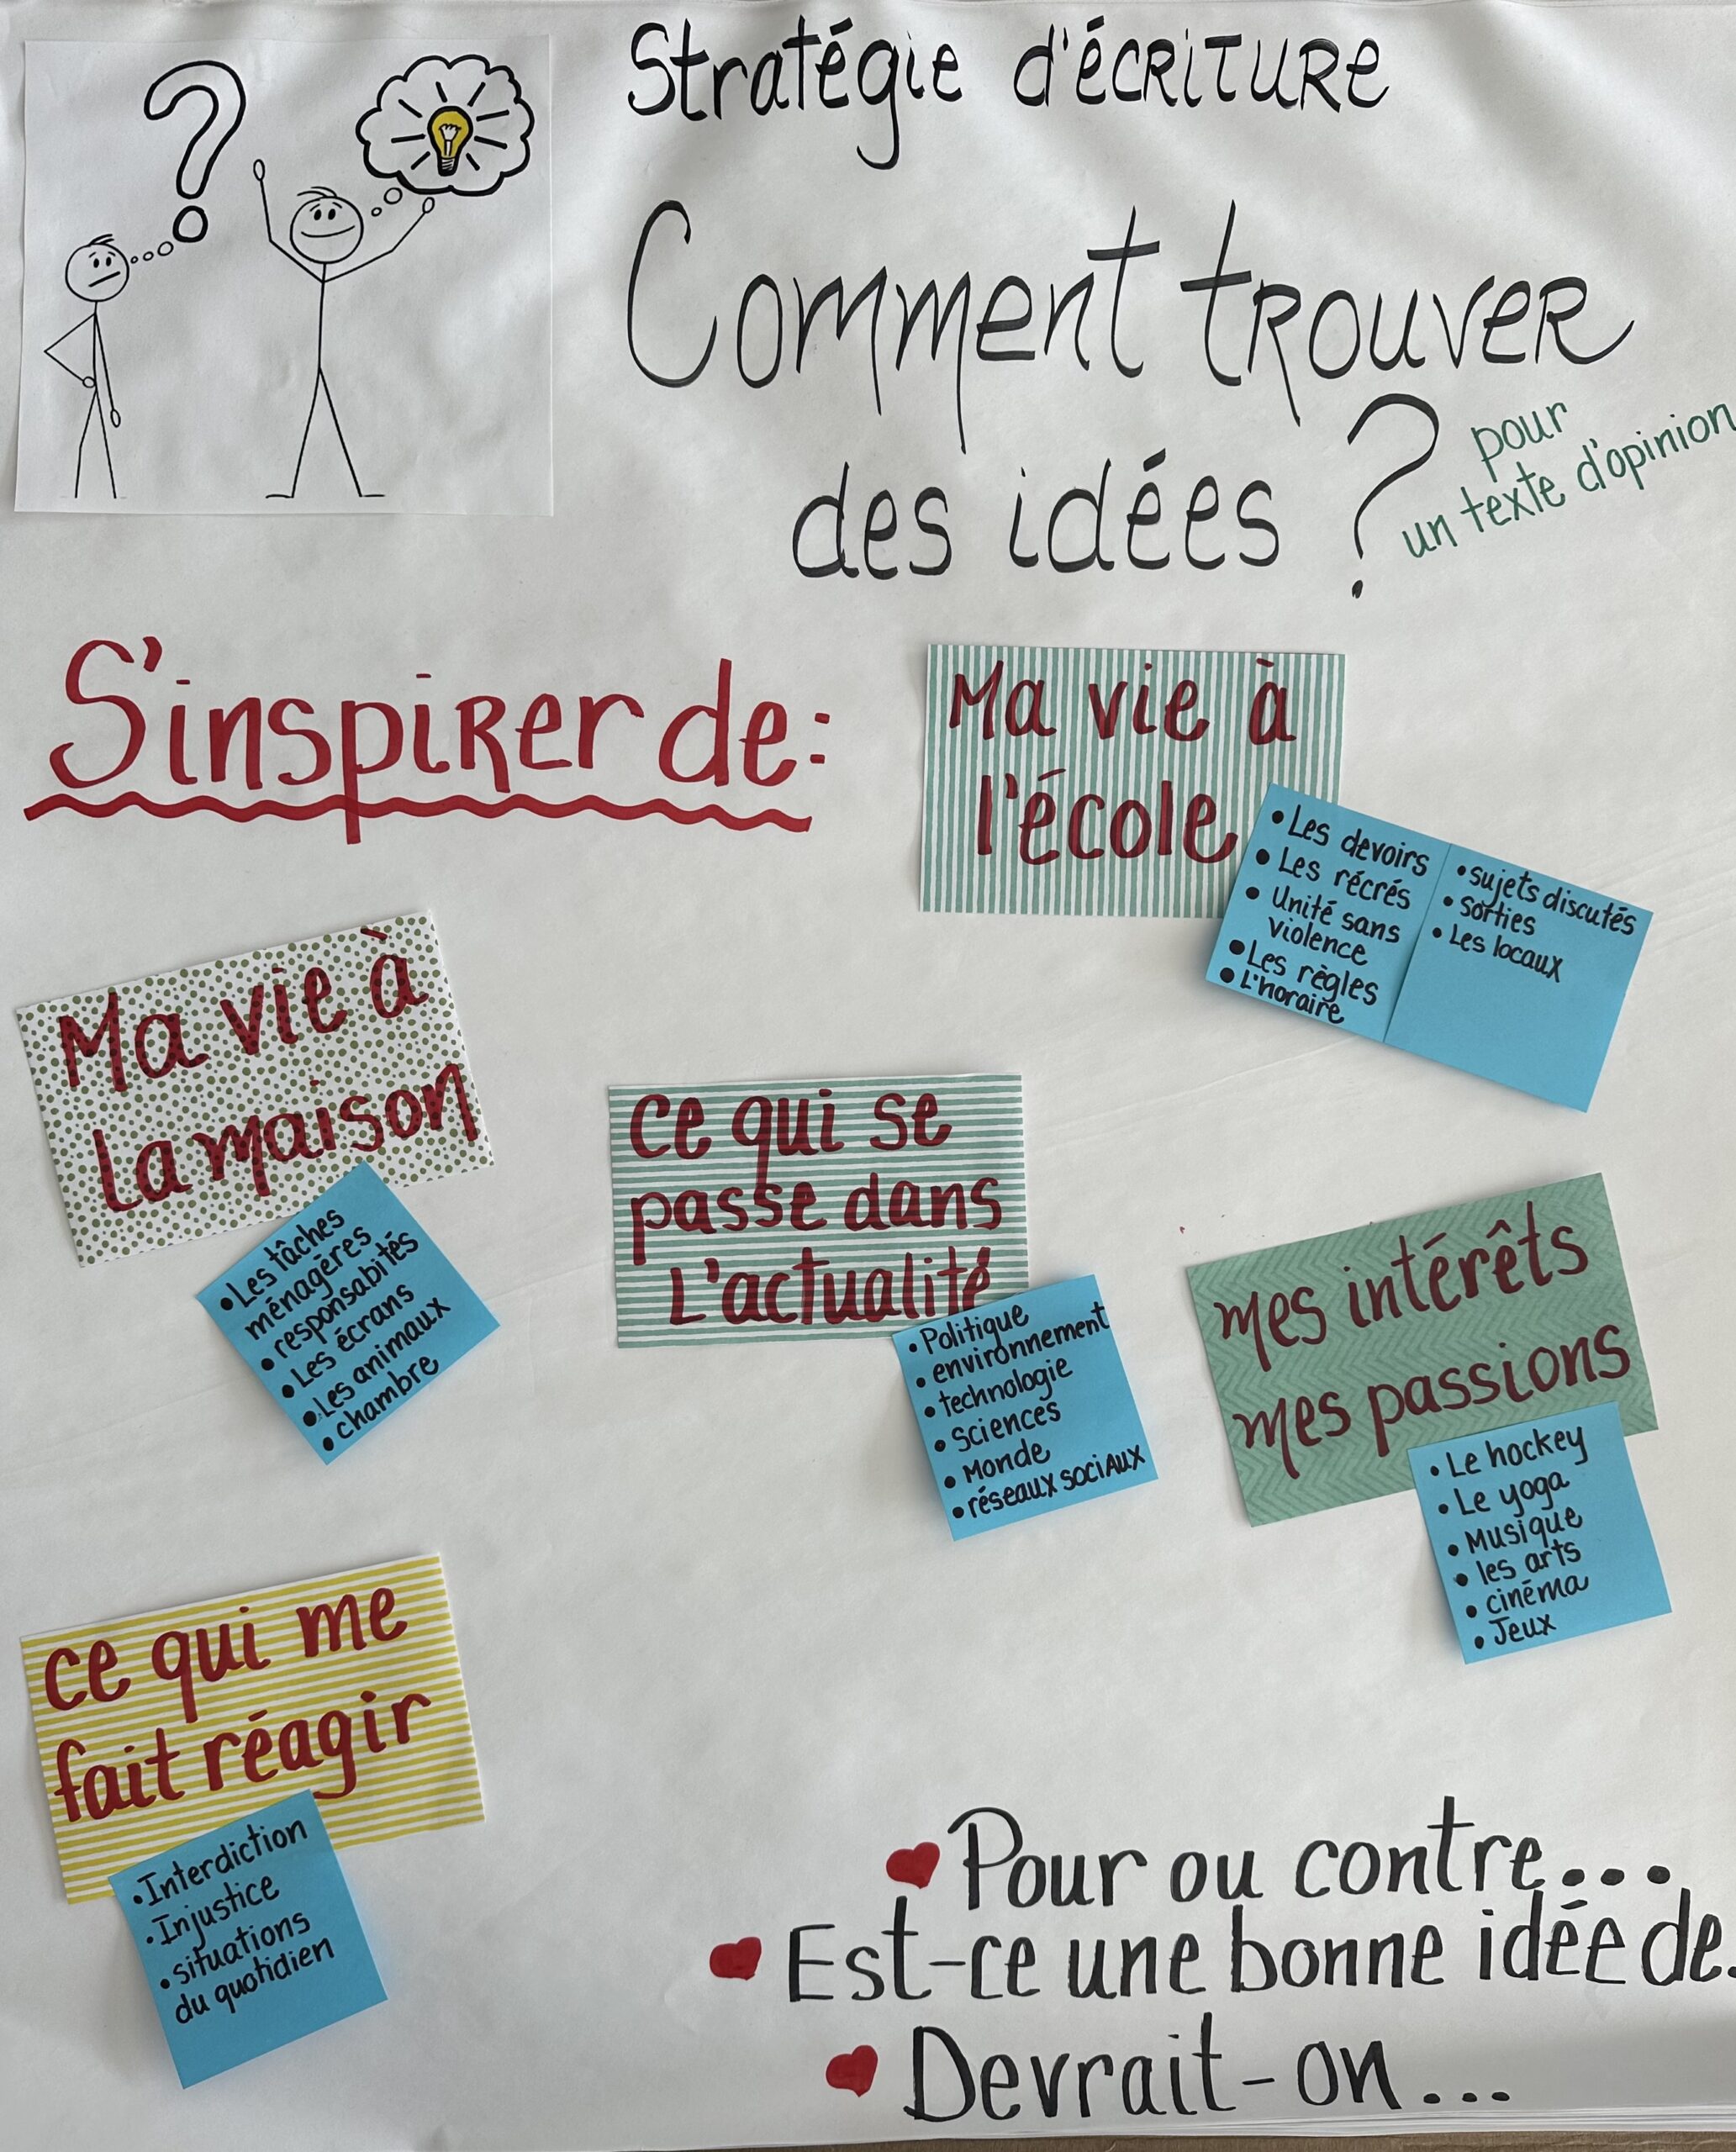 Stratégie d'écriture
Comment trouver
des idées ?
pour
un texte d'opinion
S'inspirer de:
Ma vie à
l'école
• Les devoirs
• Les récrés
• Unité sans
violence
• Les règles
• L'horaire
• sujets discutés
• sorties
• Les locaux
Ma vie à
la maison
• Les tâches
ménagères
• responsabités
• Les écrans
• Les animaux
• chambre
Ce qui se
passe dans
L'actualité
• Politique
• environnement
• technologie
• Sciences
• Monde
• réseaux sociaux
mes intérêts
mes passions
• Le hockey
• Le yoga
• Musique
• les arts
• cinéma
• Jeux
Ce qui me
fait réagir
• Interdiction
• Injustice
• situations
du quotidien
Pour ou contre...
Est-ce une bonne idée de.
Devrait-on...